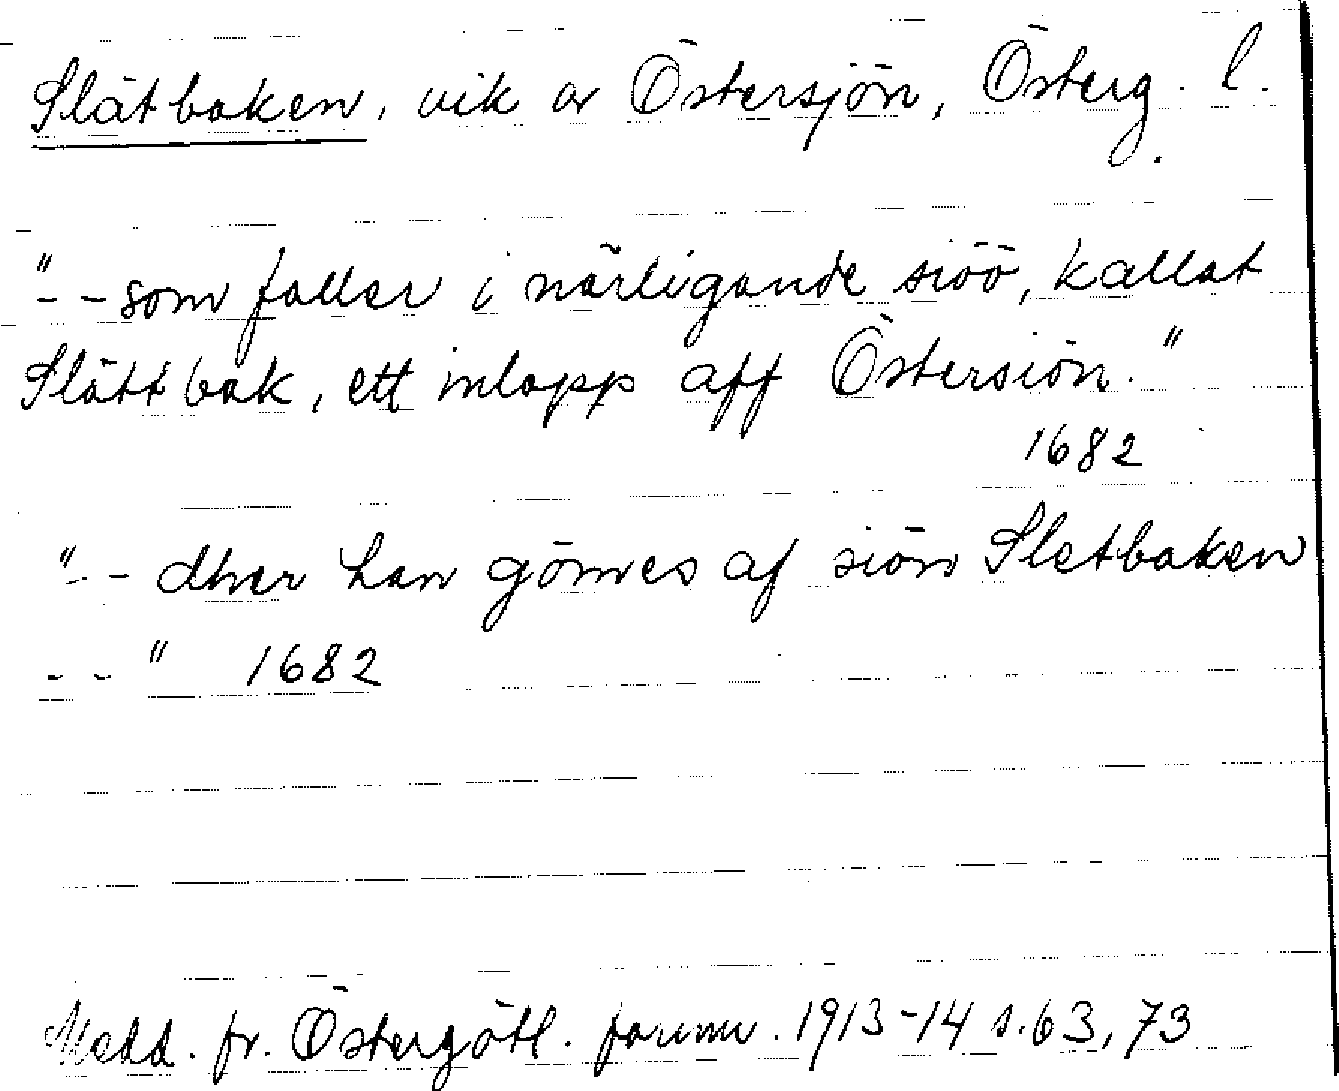 Slätbaken, vik av Östersjön, Österg. l.
"- - som faller i närligande siöö, kallat
Slättbak, ett inlopp aff Östersiön."
1682
"- - dher han gömes af siön Sletbaken
- - " 1682
Medd. fr. Östergötl. fornm. 1913-14 s. 63, 73